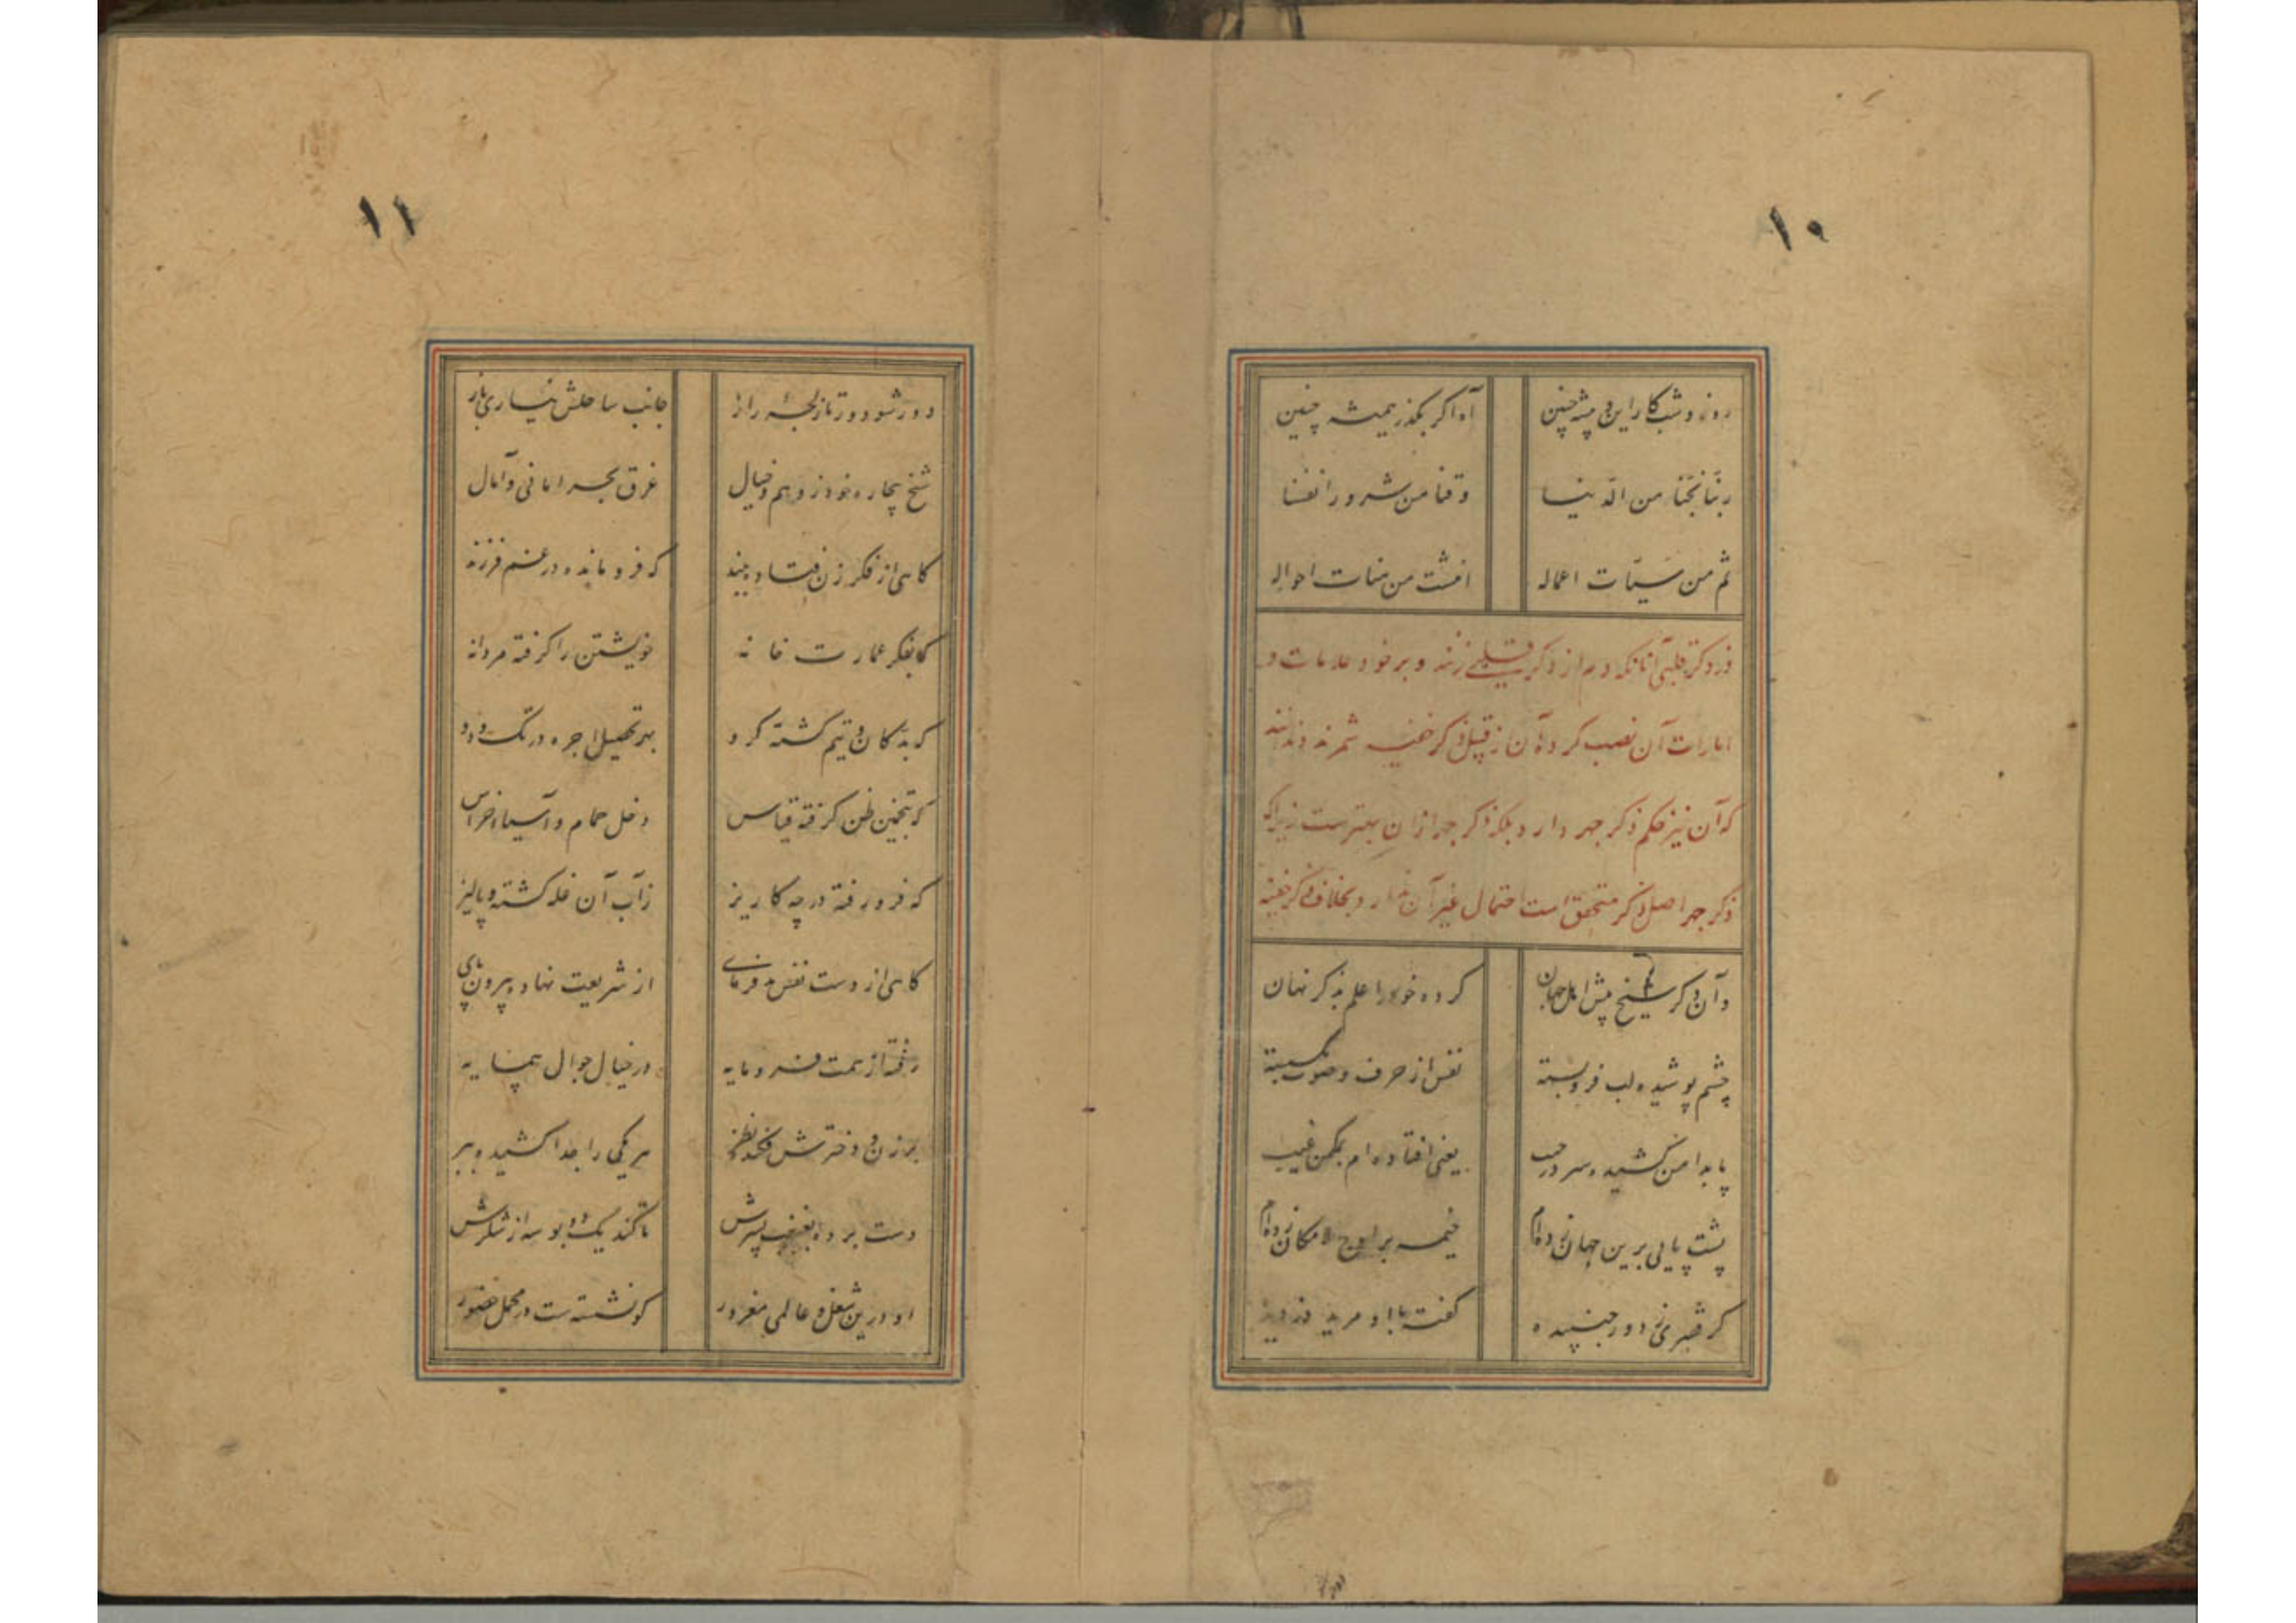 ۱۰
روز و شب کار این و پیشه چنین آه اگر بگذرد همیشه چنین
ربّنا نجّنا من الدنیا وقنا من شرور انفسنا
ثم من سیّات اعماله
در ذکر قلبی آنانکه دم از ذکر قلبی زنند و بر خود علامات و
امارات آن نصب کرده آن از قبیل ذکر خفیه شمرند و ندانند
که آن نیز حکم ذکر جهر دارد بلکه ذکر جهر از آن بهترست زیراکه
ذکر جهر اصل ذکر متحقق است احتمال غیر آن ندارد بخلاف ذکر خفیه
وآن دگر شیخ پیش اهل جهان کرده خود را علم بذکر نهان
چشم پوشیده لب فروبسته نفس از حرف و صوت بگسسته
پا بدامن کشیده سر در جیب یعنی افتاده ام بمکمن غیب
پشت پایی برین جهان زده ام خیمه بر اوج لامکان زده ام
گر فقیری ز دور جنبیده گفته با او مرید دزدیده
۱۱
دور شو دور تا ز لجهٔ راز جانب ساحلش نیاری باز
شیخ بیچاره خود ز وهم و خیال غرق بحر امانی و آمال
گاهی از فکر زن فتاده ببند که فرو مانده در غم فرزند
گه بفکر عمارت خانه خویشتن را گرفته مردانه
گه بدکان و تیم گشته گرو بهر تحصیل اجره در تک و دو
گه بتخمین ظن گرفته قیاس دخل حمام و آسیا و خراس
گه فرو رفته در چه کاریز ز آب آن غله کشته و پالیز
گاهی از دست نفس بدفرمای از شریعت نهاده بیرون پای
رفته از همت فرومایه در خیال جوال همسایه
بر زن و دخترش فکنده نظر هر یکی را جدا کشیده ببر
دست برده بغبغب پسرش تا کند یک دو بوسه از شکرش
او درین شغل و عالمی مغرور کو نشسته ست در محل حضور